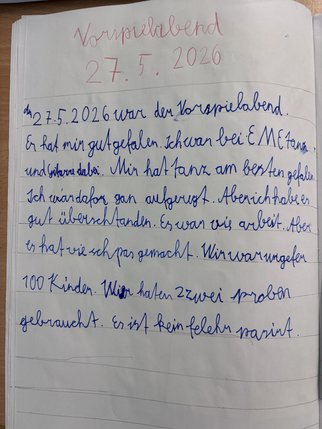 Vorspielabend
27.5.2026
am 27.5.2026 war der Vorspielabend.
Er hat mir gut gefalen. Ich war bei EME tanz
und Gitarre dabei. Mir hat tanz am besten gefalen
Ich war dafor gan aufgerugt. Aber ich habe es
gut überschtanden. Es war vis arbeit. Aber
es hat vie schpas gemacht. Wir war ungefer
100 Kinder. Wir haten 2 zwei proben
gebraucht. Es ist kein felehr pasirt.